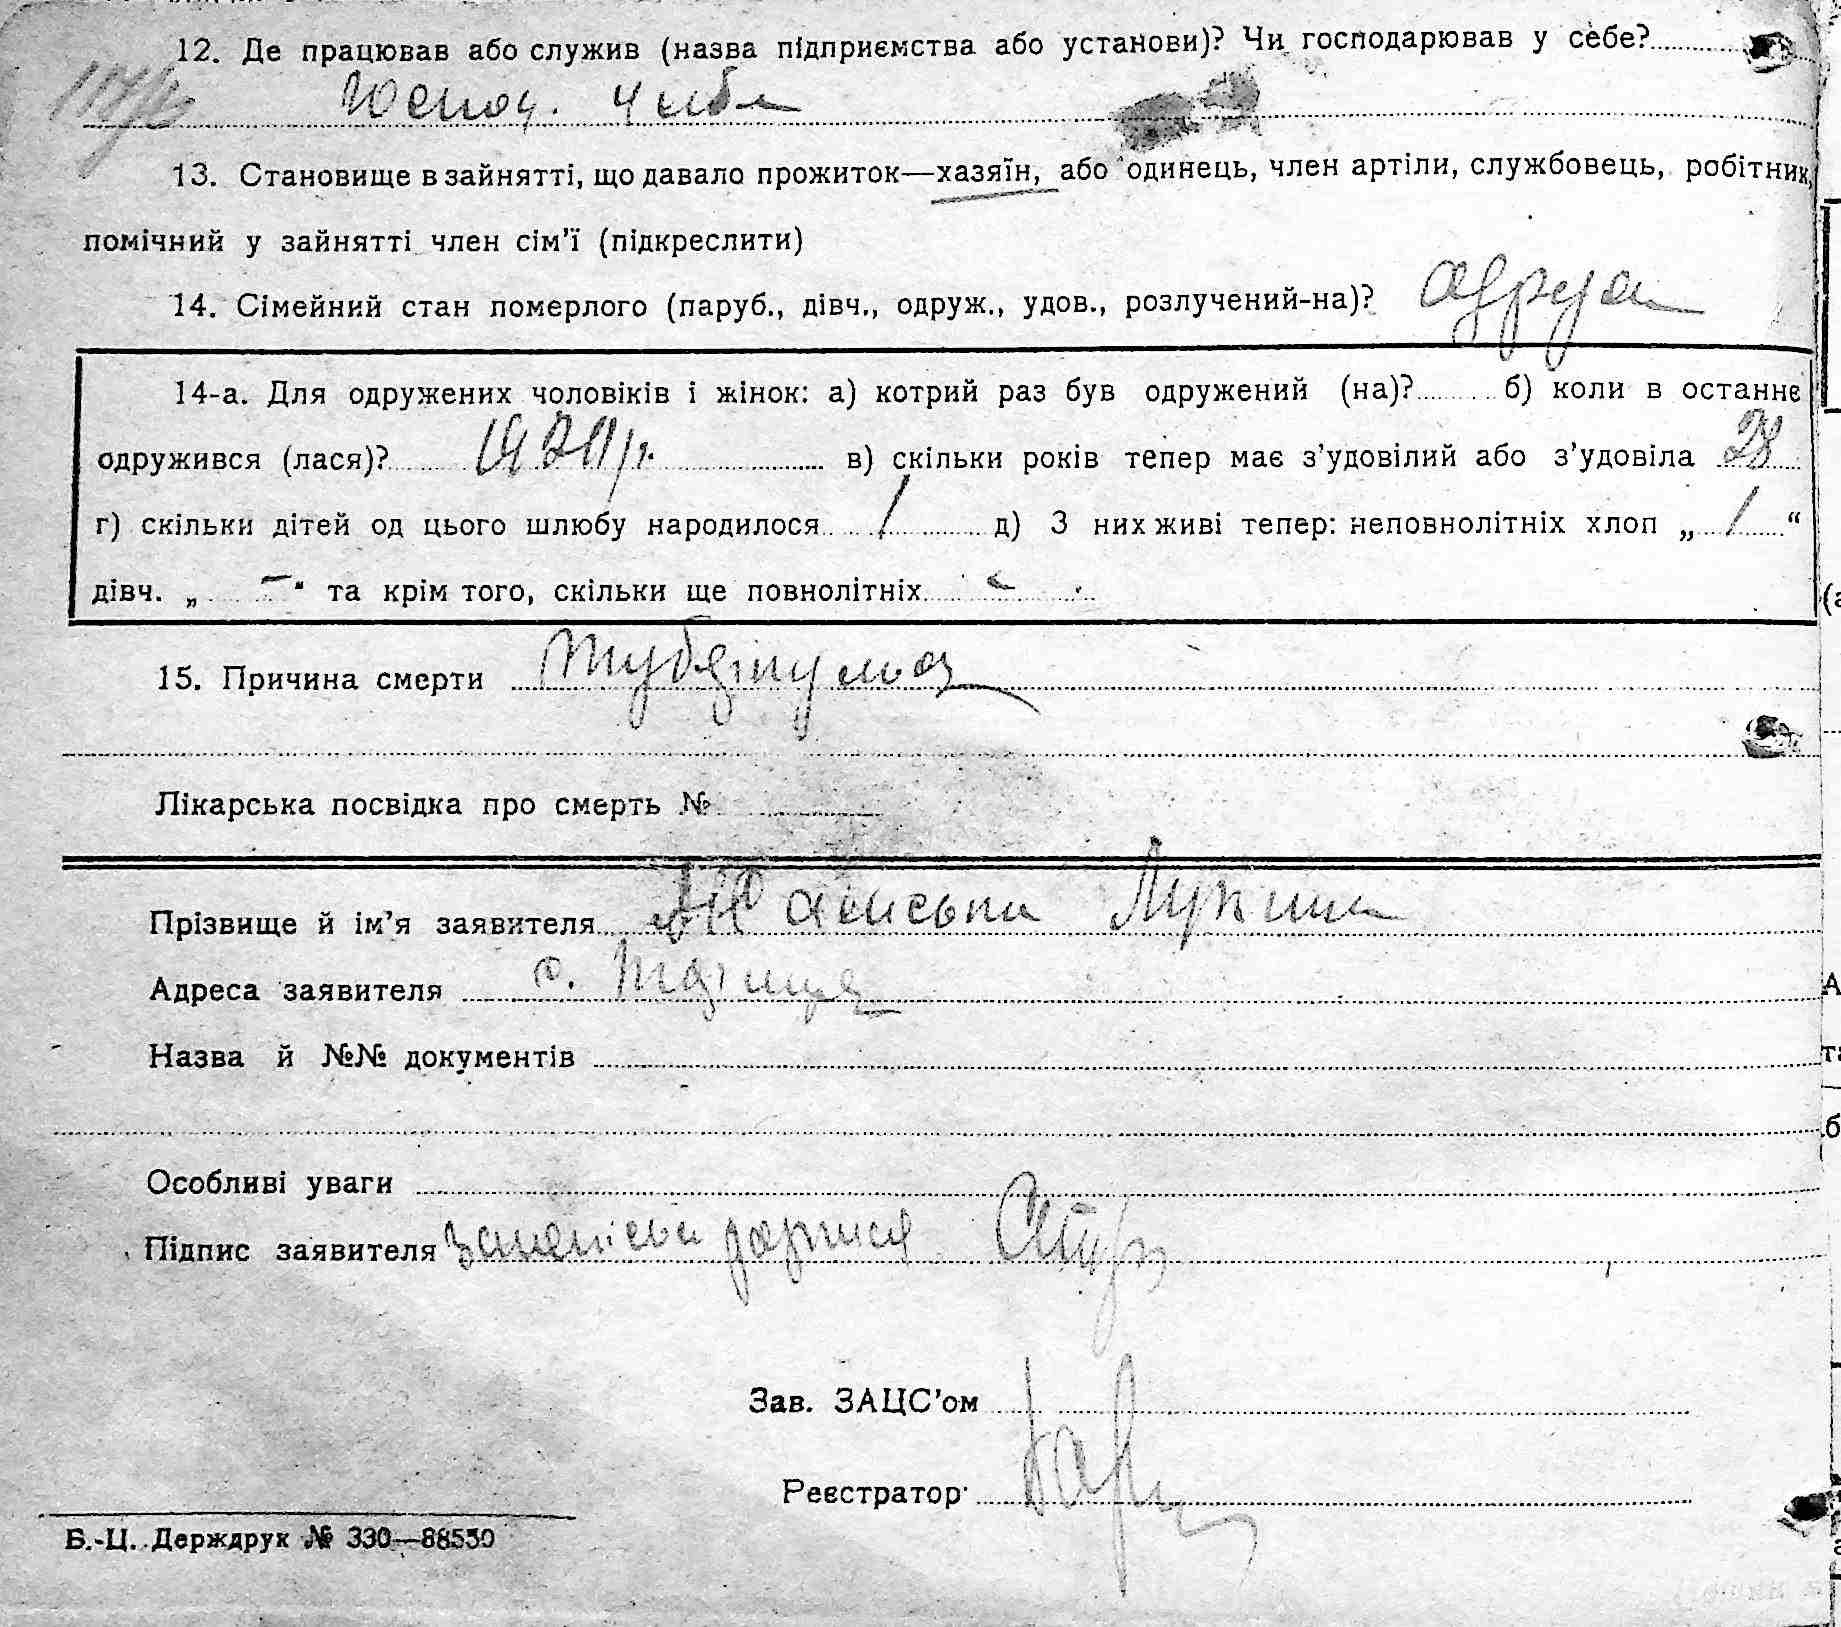 12. Де працював або служив (назва підприємства або установи)? Чи господарював у себе?
у себе
13. Становище в зайнятті, що давало прожиток—хазяїн, або одинець, член артіли, службовець, робітник,
помічний у зайнятті член сім'ї (підкреслити)
14. Сімейний стан померлого (паруб., дівч., одруж., удов., розлучений-на)?
14-а. Для одружених чоловіків і жінок: а) котрий раз був одружений (на)? б) коли в останнє
одружився (лася)? в) скільки років тепер має з'удовілий або з'удовіла 28
г) скільки дітей од цього шлюбу народилося 1 д) З них живі тепер: неповнолітніх хлоп „ 1 “
дівч. „ — “ та крім того, скільки ще повнолітніх —
15. Причина смерти
Лікарська посвідка про смерть №
Прізвище й ім'я заявителя
Адреса заявителя с.
Назва й №№ документів
Особливі уваги
Підпис заявителя
Зав. ЗАЦС'ом
Реєстратор
Б.-Ц. Держдрук № 330—88550